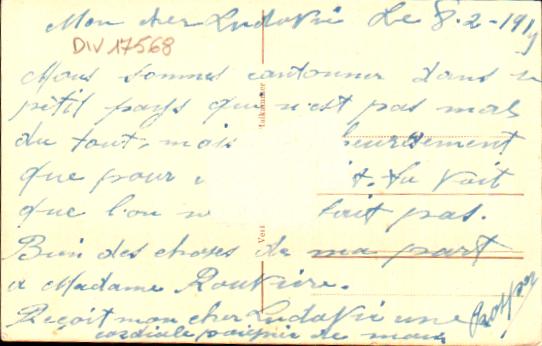 Mon cher Ludovic Le 8-2-191
DIV 17568
Nous sommes cantonner dans un
petit pays que n'est pas mal
du tout, mais heureusement
que pour tu voit
que l'on n fait pas.
Bien des choses de ma part
a Madame Rouvière.
Reçoit mon cher Ludovic une
cordiale poignée de main